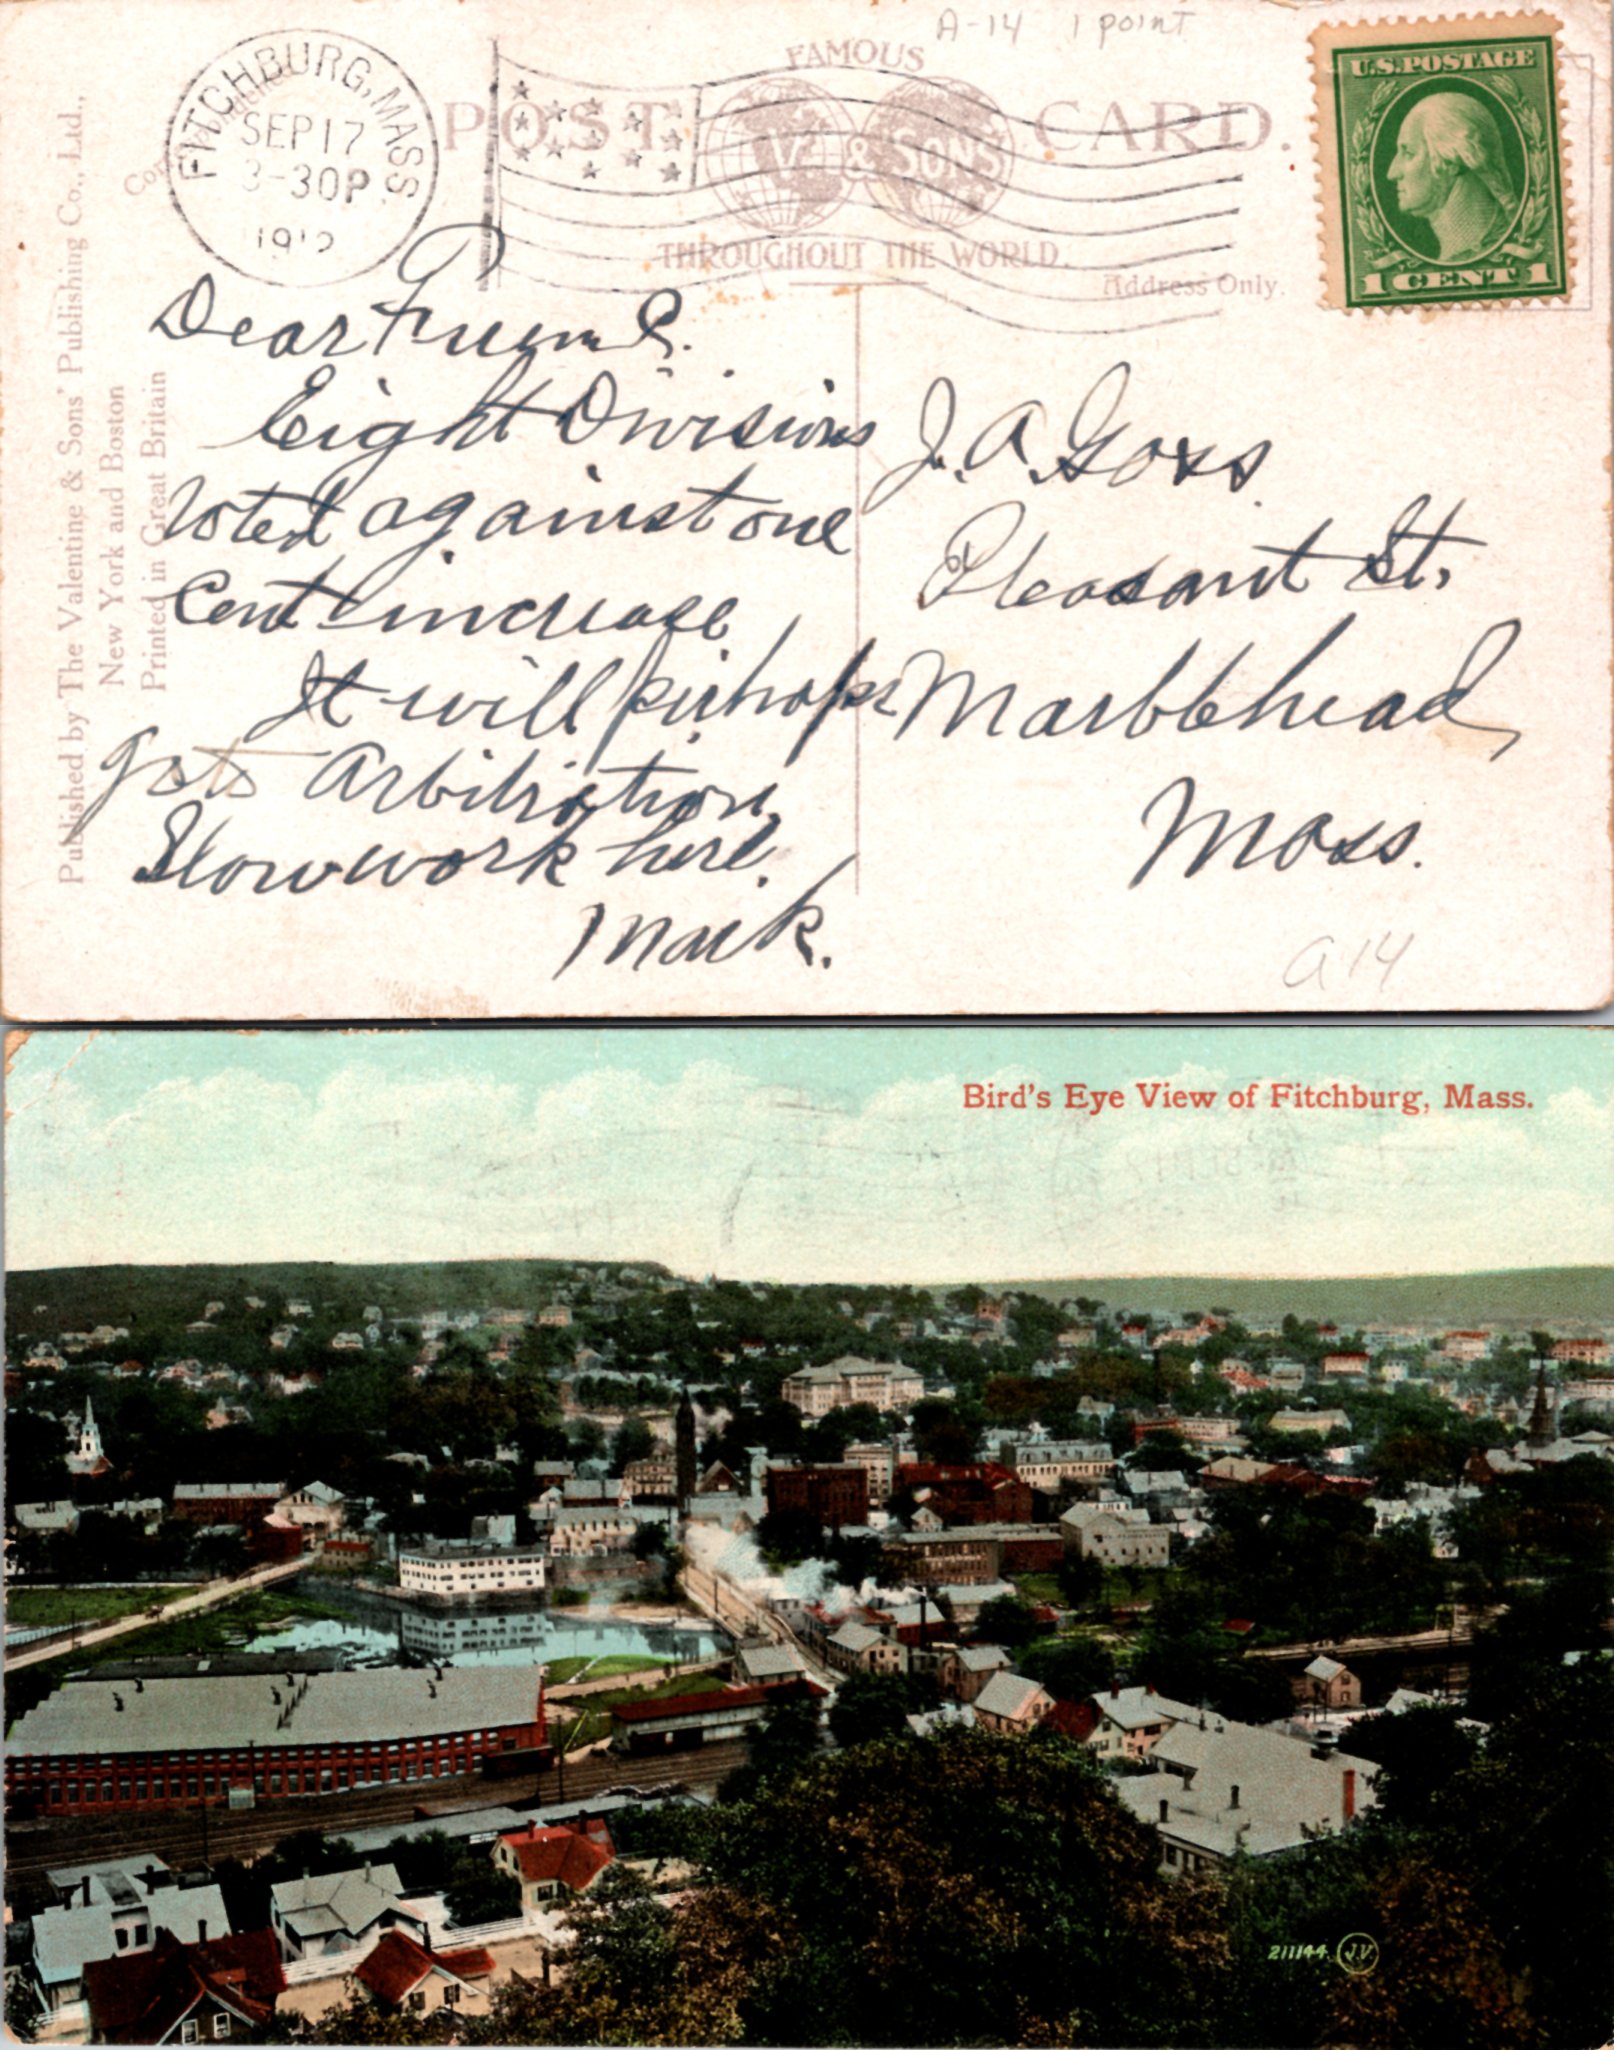 A-14 1 point
FITCHBURG, MASS.
SEP 17
3-30P
1912
Correspondence
FAMOUS
POST CARD.
V. & SONS
THROUGHOUT THE WORLD.
Address Only.
U.S. POSTAGE
1 CENT 1
Published by The Valentine & Sons' Publishing Co., Ltd.,
New York and Boston
Printed in Great Britain
Dear
Eight Divisions
voted against one
Cent increase.
It will perhaps
gets Arbitration.
Slow work here.
Mark.
J. A. Goss
Pleasant St,
Marblehead,
Mass.
a 14
Bird's Eye View of Fitchburg, Mass.
211144 J.V.